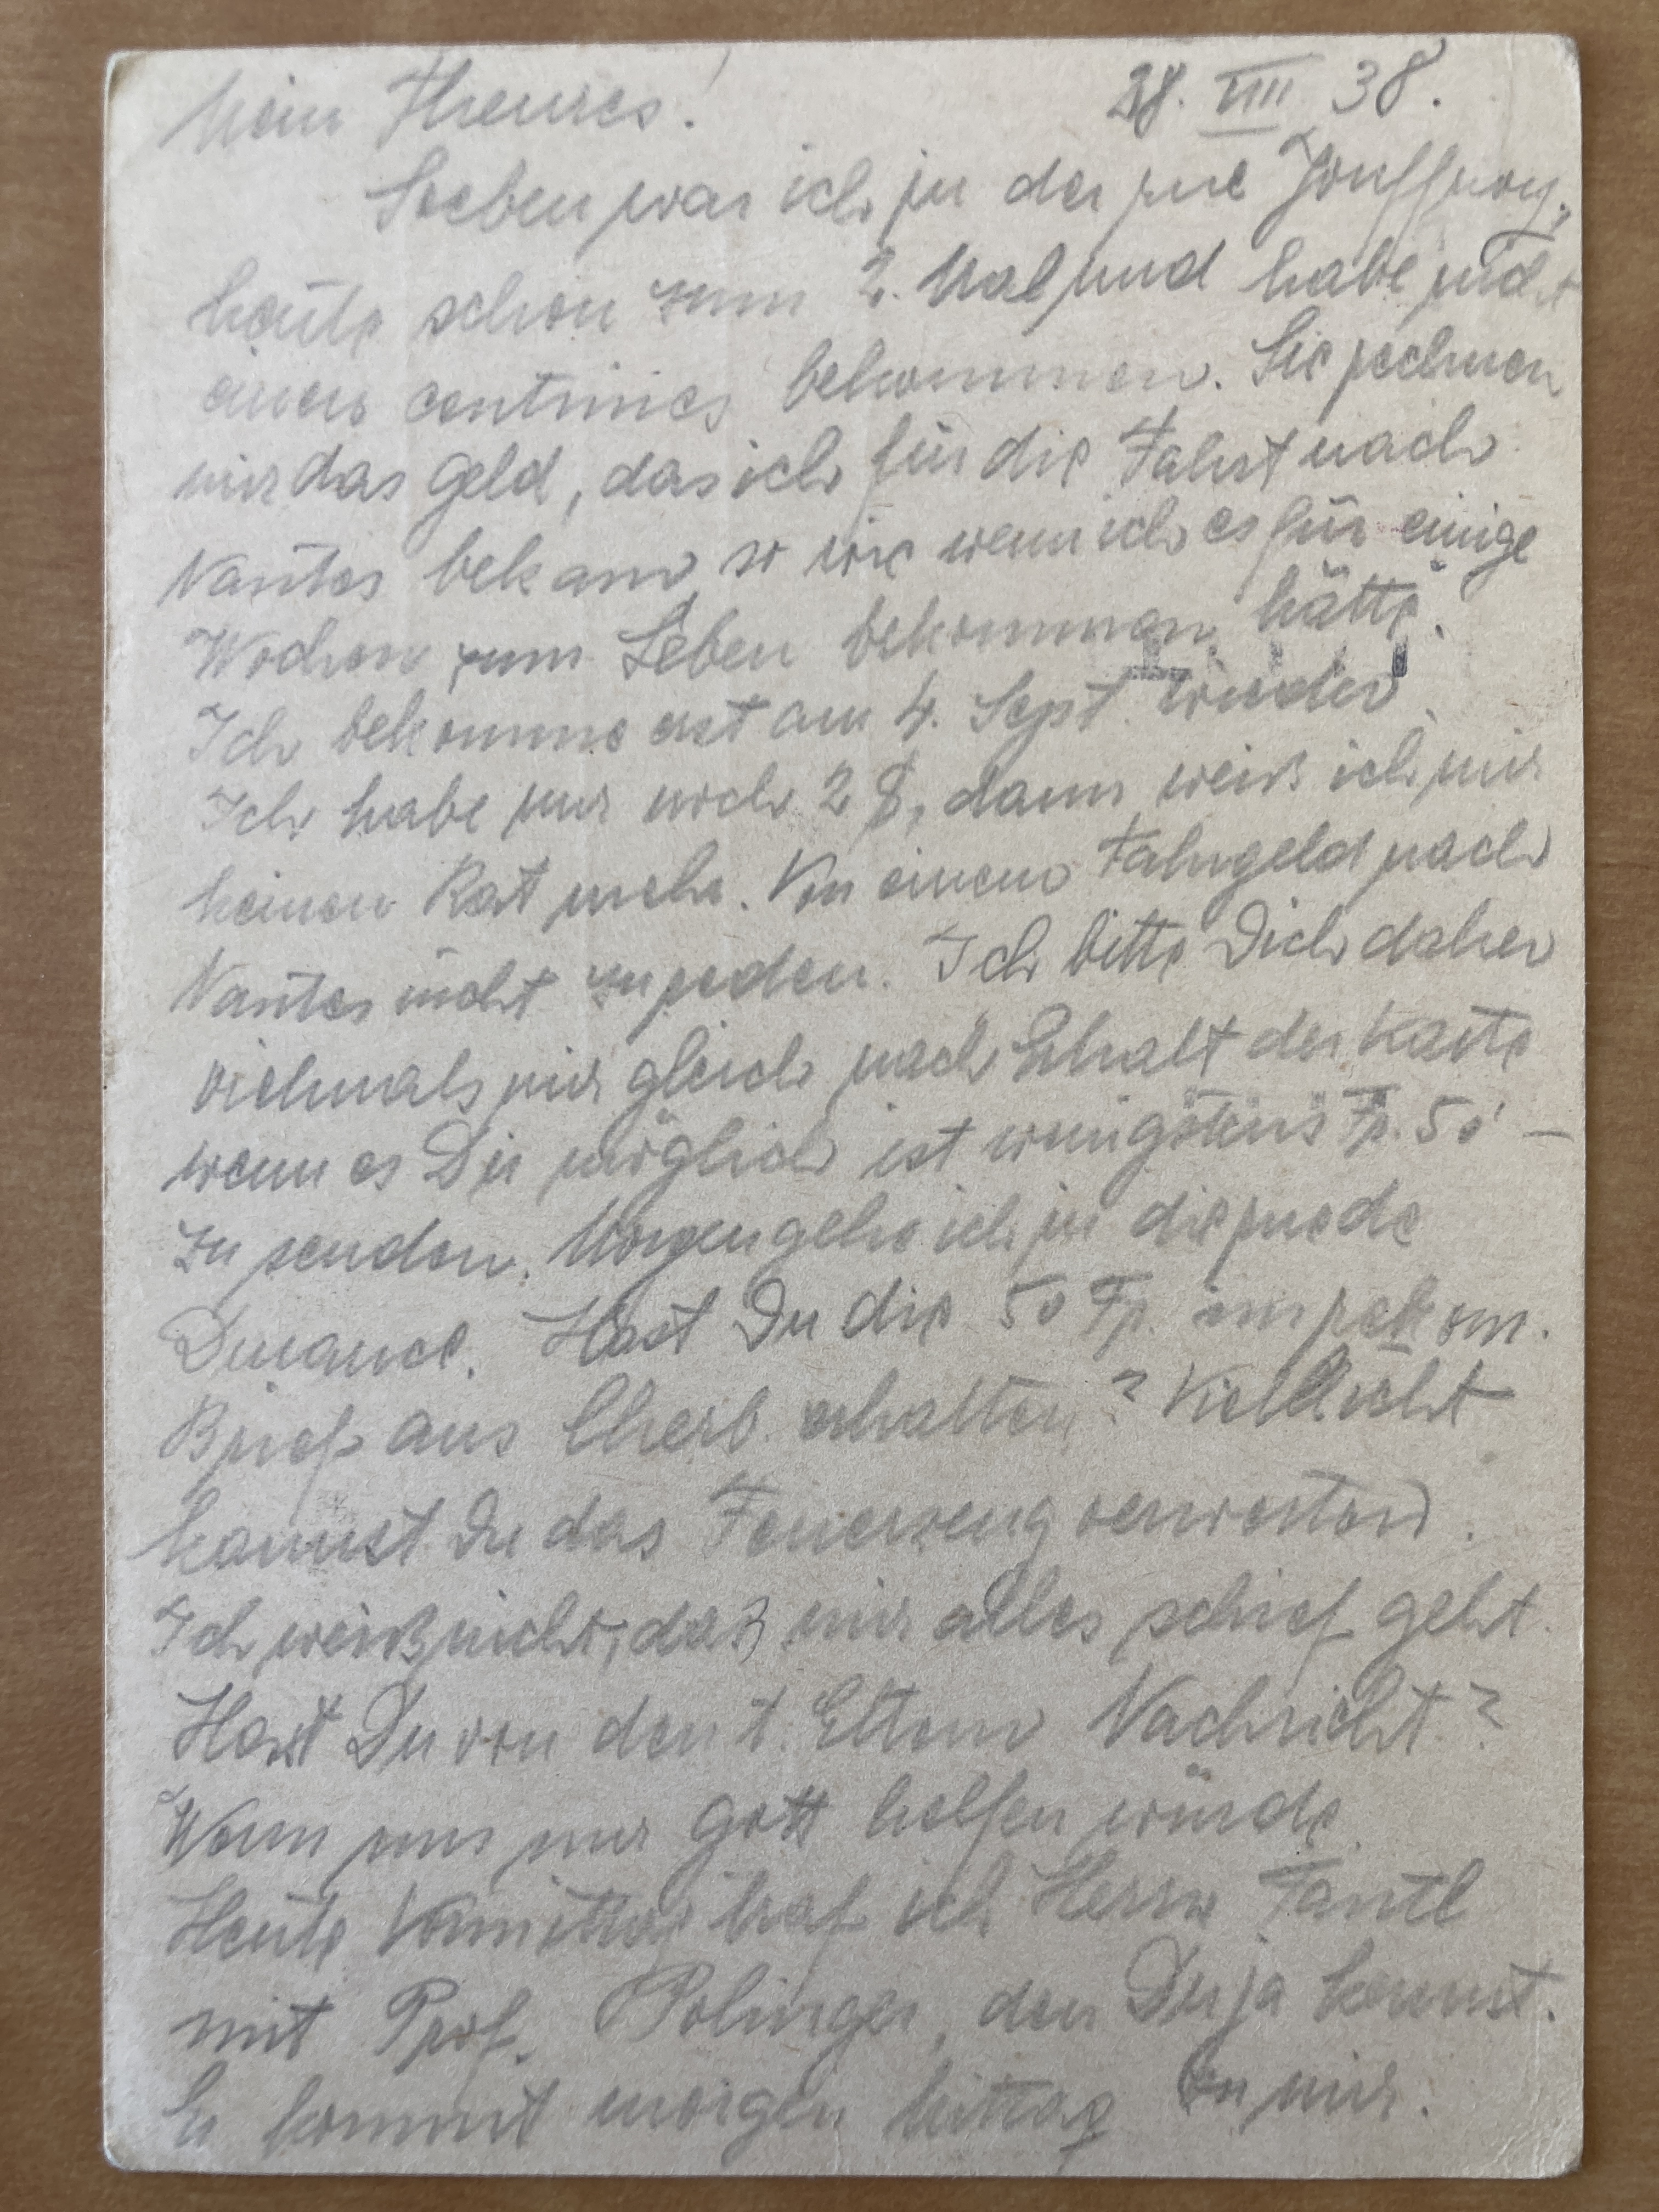 Mein Theures! 28. VIII 38.
Soeben war ich in der rue Jouffroy,
heute schon zum 2. Mal und habe nicht
einen centimes bekommen. Sie rechnen
mir das Geld, das ich für die Fahrt nach
Nantes bekam, so wie wenn ich es für einige
Wochen zum Leben bekommen hätte.
Ich bekomme erst am 4. Sept. wieder.
Ich habe nur noch 2 $, dann weiß ich mir
keinen Rat mehr. Von einem Fahrgeld nach
Nantes nicht zu reden. Ich bitte Dich daher
vielmals mir gleich nach Erhalt der Karte
wenn es Dir möglich ist wenigstens Fr. 50 –
zu senden. Morgen gehe ich in die rue de
Durance. Hast Du die 50 Fr. im rekom.
Brief aus Cherb. erhalten? Vielleicht
kannst Du das Feuerzeug verwerten.
Ich weiß nicht, daß mir alles schief geht.
Hast Du von den t. Eltern Nachricht?
Wenn uns nur Gott helfen würde.
Heute Vormittag traf ich Herrn Fantl
mit Prof. Polinger, den Du ja kennst.
Er kommt morgen Mittag zu mir.